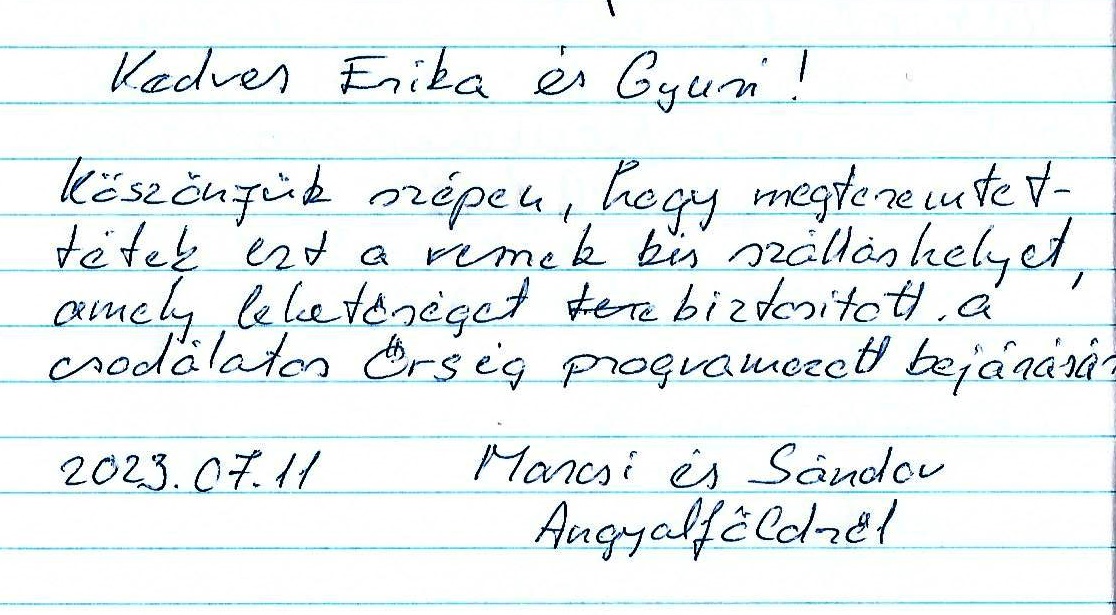 Kedves Erika és Gyuri!
Köszönjük szépen, hogy megteremtet-
tétek ezt a remek kis szálláshelyet,
amely lehetőséget tere biztosított a
csodálatos Őrség programozott bejárásár
2023.07.11 Marcsi és Sándor
Angyalföldről